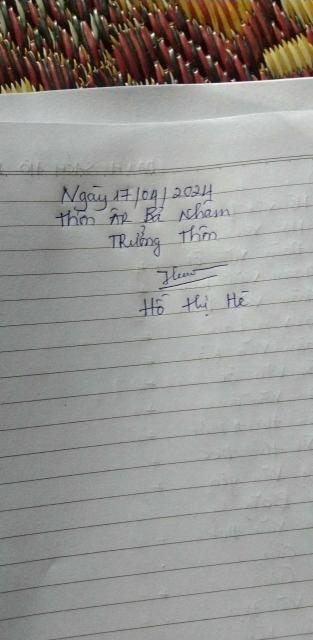 Ngày 17/04/2024
thôn Âr Bả Nhâm
Trưởng Thôn
Hồ Thị Hè